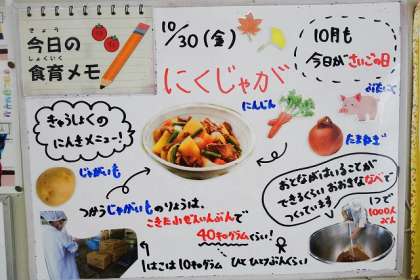 きょう
今日の
しょくいく
食育メモ
10/30(金)
10月も
今日がさいごの日
にくじゃが
きゅうしょくの
にんきメニュー!
にんじん
ぶたにく
たまねぎ
じゃがいも
つかうじゃがいものりょうは、
こきた小ぜんいんぶんで
40キログラムぐらい!
1はこは10キログラム
ひとひとりぶんくらい
おとながはいることが
できるくらいおおきななべで
つくっています
1つで
1000人
ぶん